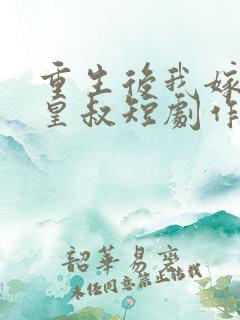 重生後我嫁
皇叔短劇作
韶華易變
未经同意禁止转载